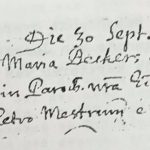 Die 30 Sept.
Maria Beckers
in Paroch. nrã
Petro Mestrum e